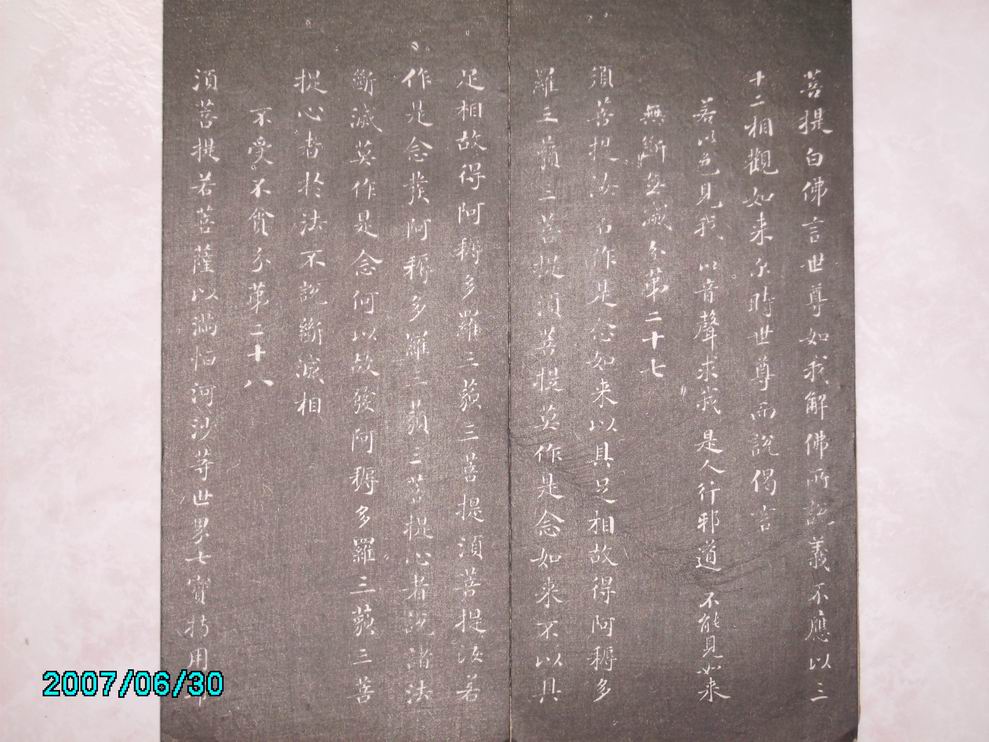 菩提白佛言世尊如我解佛所說義不應以三
十二相觀如来尒時世尊而說偈言
若以色見我 以音聲求我 是人行邪道 不能見如来
無斷無滅分第二十七
湏菩提汝若作是念如来以具足相故得阿耨多
羅三藐三菩提湏菩提莫作是念如来不以具
足相故得阿耨多羅三藐三菩提湏菩提汝若
作是念發阿耨多羅三藐三菩提心者說諸法
斷滅莫作是念何以故發阿耨多羅三藐三菩
提心者於法不說斷滅相
不受不貪分第二十八
湏菩提若菩薩以滿恒河沙等世界七寶持用
2007/06/30